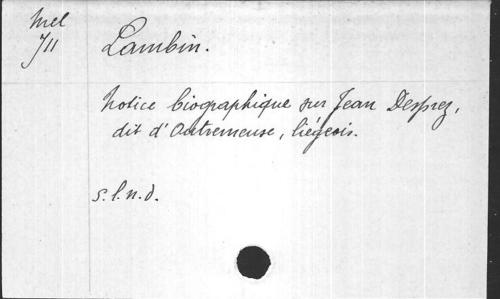 Mel
711
Lambin.
Notice biographique sur Jean Desprez,
dit d'Outremeuse, liégeois.
s.l.n.d.